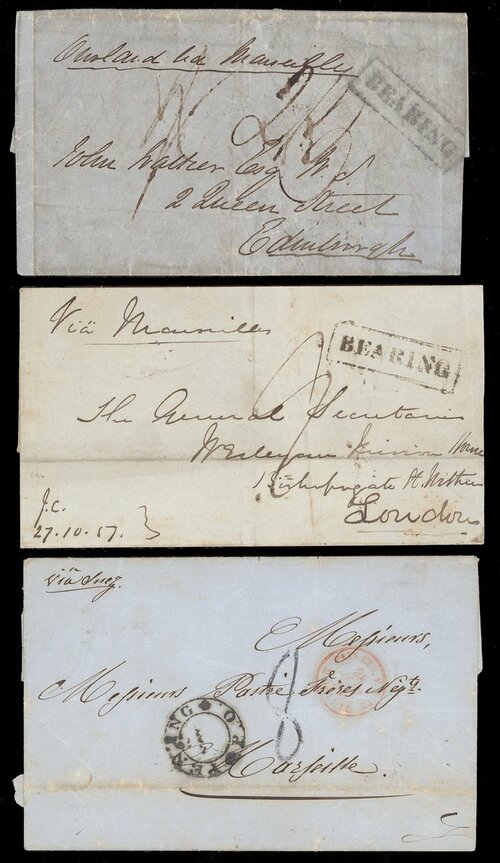 Overland via Marseilles
BEARING
John Walker Esq W.S
2 Queen Street
Edinburgh
Via Marseilles
BEARING
The General Secretaries
Wesleyan Mission House
Bishopsgate St. Within
London
J.C.
27.10.57.
via Suez.
Messieurs,
8
Messieurs Pastré Frères Negts.
Marseille.